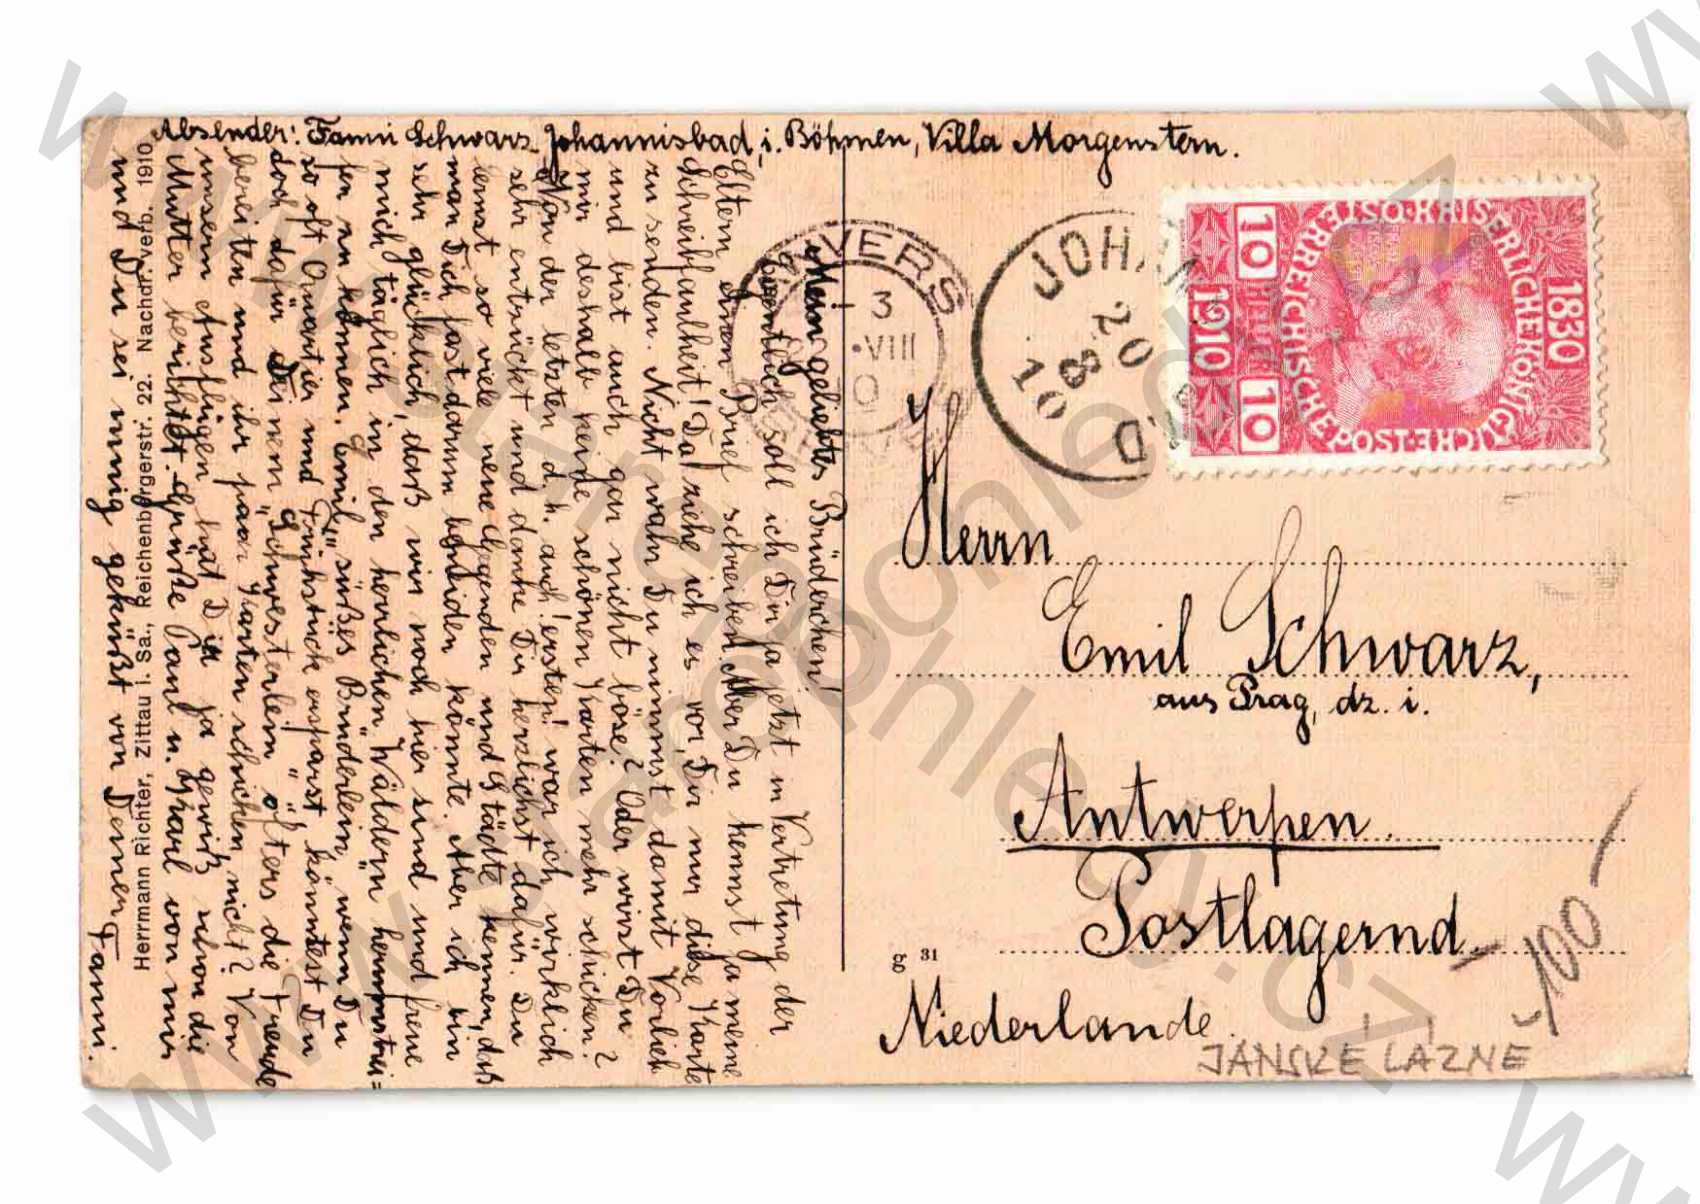 Absender: Fanni Schwarz, Johannisbad, i. Böhmen, Villa Morgenstern.
Mein geliebtes Brüderchen!
Eigentlich soll ich Dir ja jetzt in Vertretung der
Eltern einen Brief schreiben. Aber Du kennst ja meine
Schreibfaulheit! Da ziehe ich es vor, Dir nur diese Karte
zu senden. Nicht wahr Du nimmst damit Vorlieb
und bist auch gar nicht böse? Oder wirst Du
mir deshalb keine schönen Karten mehr schicken?
Von der letzten d. h. auch ersten! war ich wirklich
sehr entzückt und danke Dir herzlichst dafür. Du
lernst so viele neue Gegenden und Städte kennen, daß
man Dich fast darum beneiden könnte. Aber ich bin
sehr glücklich, daß wir noch hier sind und freue
mich täglich in den herrlichen Wäldern herumstrei=
fen zu können. Emil, süßes Brüderlein, wenn Du
so oft Quartier und Frühstück ersparst, könntest Du
doch dafür Deinem "Schwesterlein" öfters die Freude
bereiten und ihr paar Karten schicken, nicht? Von
unseren Ausflügen hat Dir ja gewiß schon die
Mutter berichtet. Grüße Paul u. Karl von mir
und Du sei innig geküßt von Deiner Fanni.
Herrmann Richter, Zittau i. Sa., Reichenbergerstr. 22. Nachdr. verb. 1910
ANVERS
3
VIII
JOHAN
20
8
10
D
1830
KAISERLICHE KÖNIGLICHE
ÖSTERREICHISCHE POST
10
1910
10
Herrn
Emil Schwarz,
aus Prag, dz. i.
Antwerpen.
Postlagernd.
g 31
Niederlande.
JÁNSKÉ LÁZNĚ
100
www.starepohledy.cz
www.starepohledy.cz